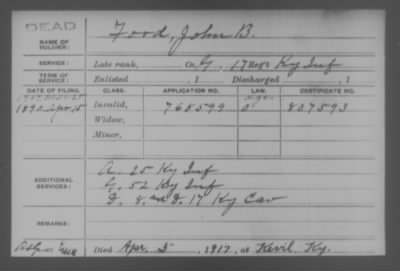 DEAD
NAME OF SOLDIER: Foord, John B.
SERVICE: Late rank, Co. G, 17 Regt Ky Inf
TERM OF SERVICE: Enlisted , 1 Discharged , 1
DATE OF FILING. CLASS. APPLICATION NO. LAW. CERTIFICATE NO.
1890 Apr 15 Invalid, 768599 837593
Widow,
Minor,
ADDITIONAL SERVICES: A. 25 Ky Inf
G. 52 Ky Inf
17 Ky Cav
REMARKS:
Died Apr. 5, 1917, at Kevil, Ky.